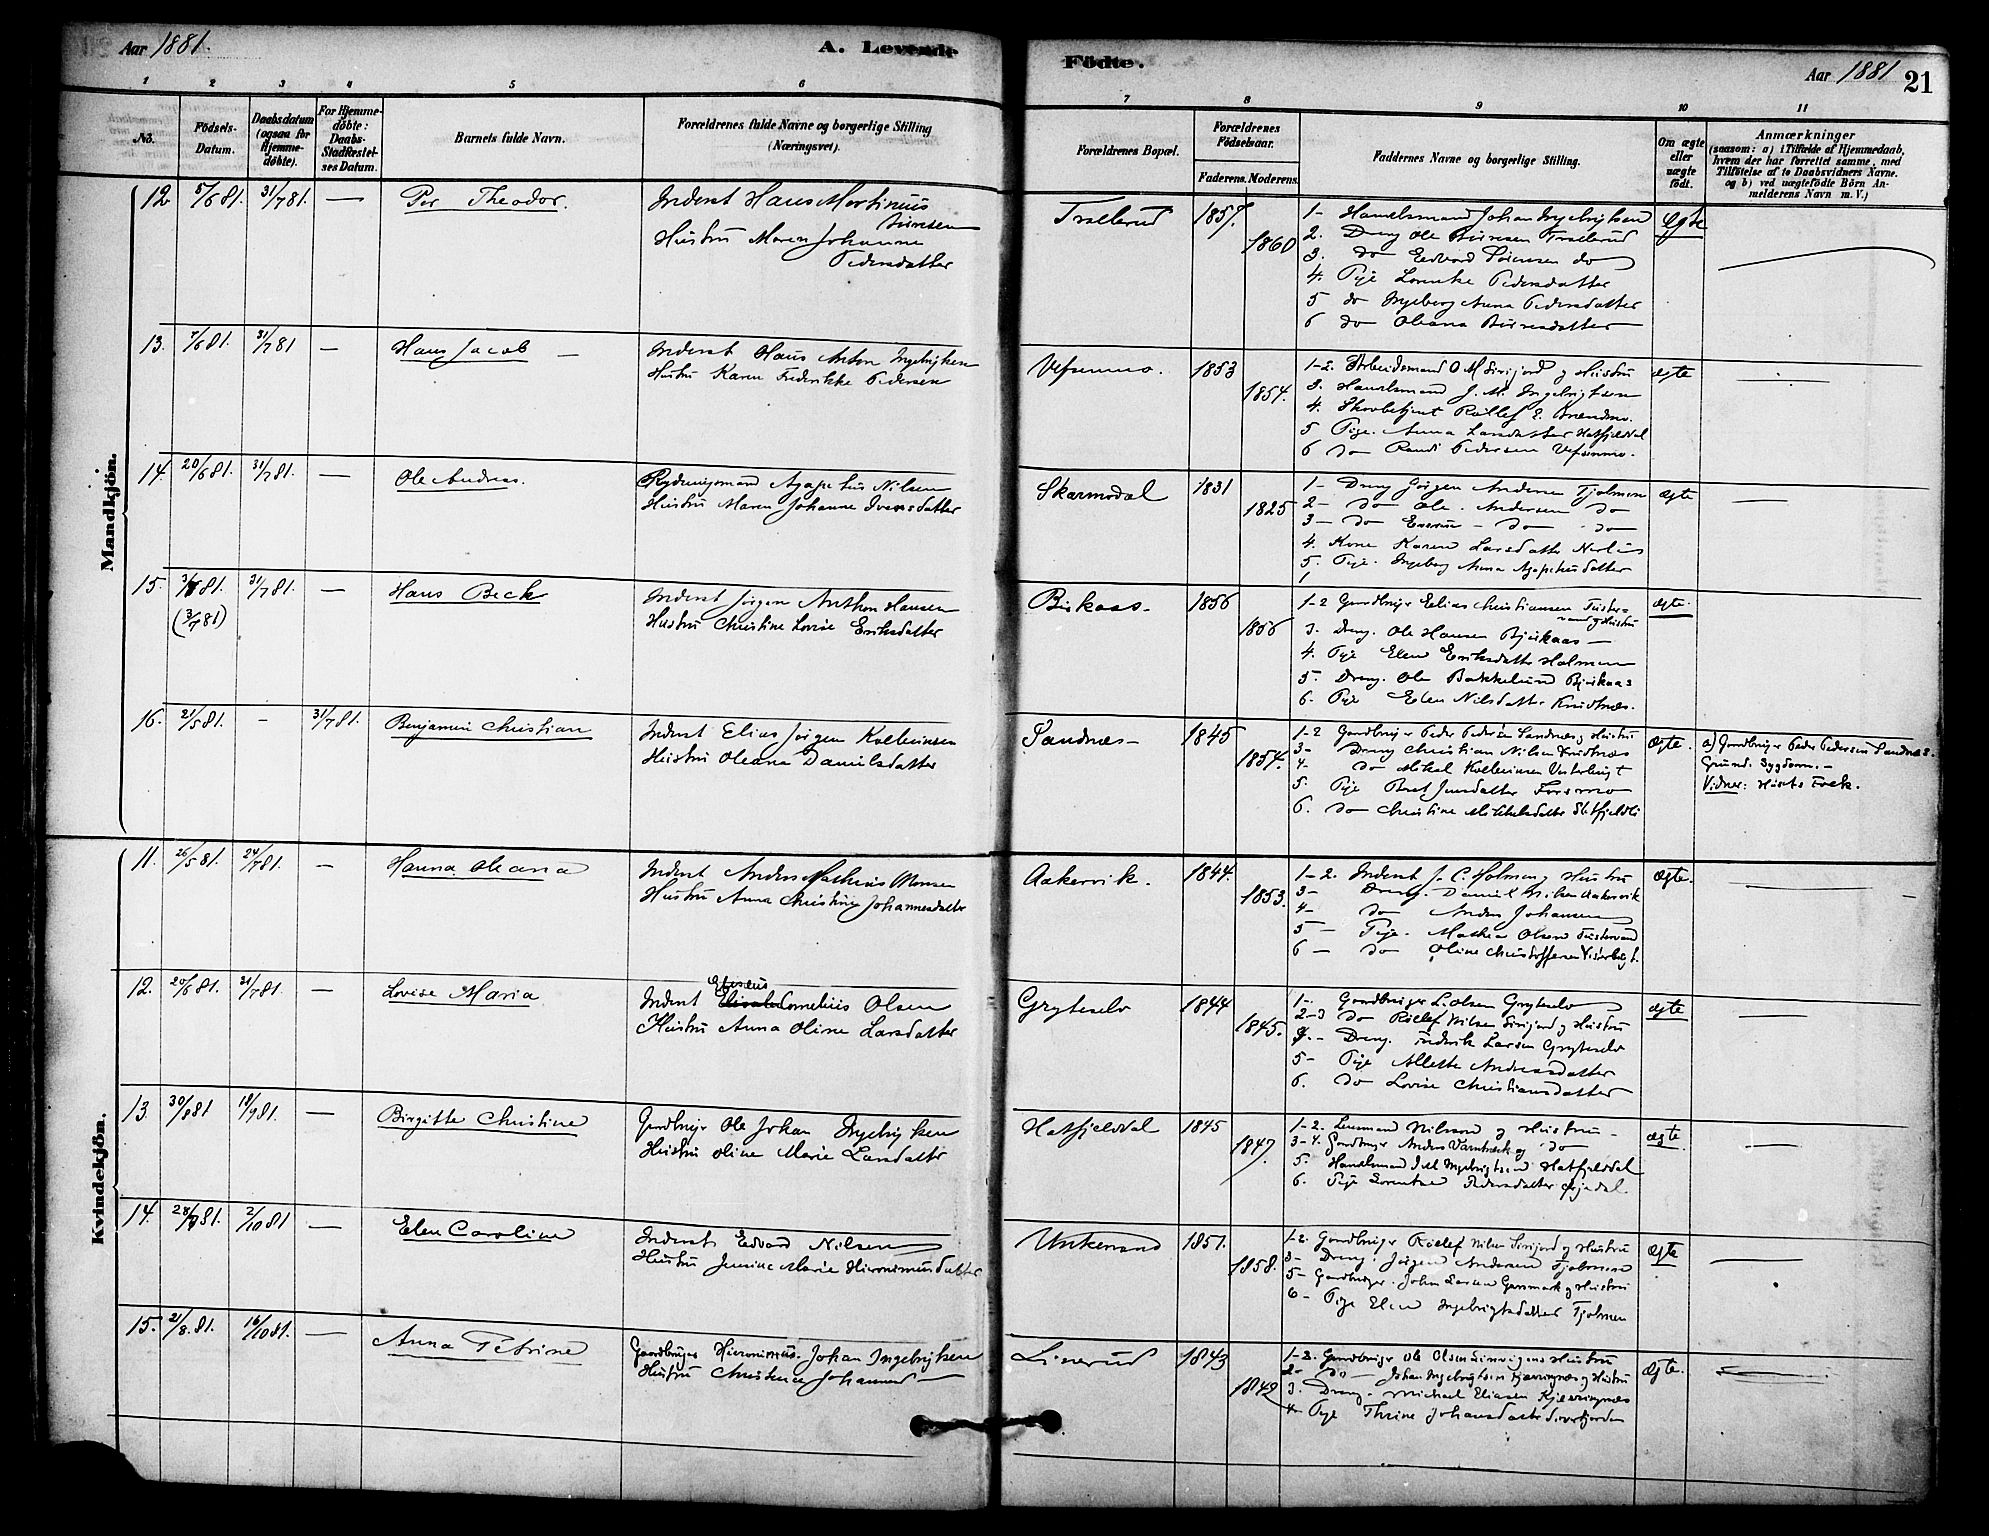 Aar 1881.
A. Levende
Födte.
Aar 1881
21
1 2 3 4 5 6
7 8 9 10 11
No.
Födsels-
Datum.
Daabsdatum
(ogsaa for
Hjemme-
döbte).
For Hjemme-
döbte:
Daabs-
Stadfæstel-
ses Datum.
Barnets fulde Navn.
Forældrenes fulde Navne og borgerlige Stilling
(Næringsvei).
Forældrenes Bopæl.
Forældrenes
Födselsaar.
Faderens. Moderens.
Faddernes Navne og borgerlige Stilling.
Om ægte
eller
uægte
födt.
Anmærkninger
(saasom: a) i Tilfælde af Hjemmedaab,
hvem der har forrettet samme, med
Tilföielse af to Daabsvidners Navne.
og b) ved uægtefödte Börn An-
melderens Navn m. V.)
Mandkjön.
12 5/6 81. 31/7 81. — Per Theodor.
Inderst Hans Mortinus
Hustru Maren Johanne
Pedersdatter
Trællerud 1857. 1860
1- Johan Ingebrigtsen
2. Dreng Ole Trællerud
3. do Edvard Sörensen do
4. Pige Pedersdatter
5 do Ingeborg Anna Pedersdatter
6 do Oleana
Ægte
13. 7/6 81. 31/7 81 — Hans Jacob —
Inderst Hans Anton Ingebrigtsen
Hustru Karen Frederikke Pedersen
Vefsenmo. 1853 1854.
1-2. Arbeidsmand O M Sirijord og Hustru
3. J. M. Ingebrigtsen
4. Röllef E.
5 Pige. Anna Larsdatter Hatfjelddal
6 do Randi Pedersen Vefsenmo.
ægte
14. 20/6 81. 31/7 81. — Ole Andreas.
Rydningsmand Agapetus Nilsen
Hustru Maren Johanne Iversdatter
Skarmodal 1831 1825
1- Dreng Jörgen Andersen Fjolmoen
2- do Ole. Andersen do
3- do do do
4. Kone Karen Larsdatter
5. Pige. Ingeborg Anna Agapetusdatter
ægte
15. 3/7 81. 31/7 81. — Hans Beck
(3/7 81)
Inderst Jörgen Anthon Hansen
Hustru Christine Lovise Eriksdatter
Birkaas- 1856 1856
1-2 Gaardbruger Elias Christiansen
3. Dreng. Ole Hansen Bjirkaas —
4. Pige Elen Eriksdatter Holmen
5- Dreng. Ole Bakkelund Bjirkaas
6. Pige Elen Nilsdatter Knudtnæs.
ægte.
16. 21/5 81. - 31/7 81. Benjamin Christian
Inderst Elias Jörgen Kolbeinsen
Hustru Oleana Danielsdatter
Sandnæs- 1845 1854.
1-2 Gaardbruger Peder Pedersen Sandnæs og Hustru
3- Dreng Christian Nilsen Knudtnæs
4- do Mikal Kolbeinsen
5. Pige Beret Jensdatter Forsmo
6. do Christine Mikkelsdatter
Ægte.
a) Gaardbruger Peder Pedersen Sandnæs.
Grund: Sygdom. -
Vidner: Husets Folk.
Kvindekjön.
11. 26/5 81. 24/7 81. — Hanna Oleana
Inderst Anders Mathius Monsen
Hustru Anna Christine Johannesdatter
Aakervik. 1844. 1853.
1-2. Inderst J. C. Holm og Hustru
3- Dreng. Daniel Nilsen Aakervik
4- do Anders Johansen
5- Pige. Mathea Olsen
6- do Oline Christoffersen
Ægte.
12. 20/6 81. 31/7 81. — Lovise Maria
Inderst Cornelius Olsen
Hustru Anna Oline Larsdatter
Gryteselv 1844 1845.
1- Gaardbruger L. Olsen Gryteselv
2-3 do Röllef Nilsen Sirijord og Hustru
4.- Dreng. Frederik Larsen Gryteselv
5- Pige Allette Andreasdatter
6. do Lovise Christiansdatter
ægte
13 30/8 81 18/9 81. — Birgitte Christine
Gaardbruger Ole Johan Ingebrigtsen
Hustru Oline Marie Larsdatter
Hatfjelddal 1845 1847.
1-2. Lensmand Nilsson og Hustru -
3-4. Gaardbruger Anders og do
5. J M Ingebrigtsen Hatfjelddal
6. Pige Lorentse Pedersdatter
ægte
14. 28/7 81. 2/10 81 — Elen Caroline
Inderst Edvard Nilsen
Hustru Marie Hieronimusdatter
Unkervand 1851. 1858.
1-2. Gaardbruger Röllef Nilsen Sirijord og Hustru
3- Dreng. Jörgen Andersen Fjolmoen
5- Gaardbruger. John Larsen og Hustru
6- Pige Elen Ingebrigtsdatter Fjolmen
ægte
15. 21/8. 81. 16/10 81. — Anna Petrine
Gaardbruger Hieronimus. Johan Ingebrigtsen
Hustru
1843 1842
1-2. Gaardbruger Ole og Hustru
2- do - Johan Ingebrigtsen og Hustru
3. Dreng. Michael Eliasen
4- Pige Thrine Johansdatter
Ægte.